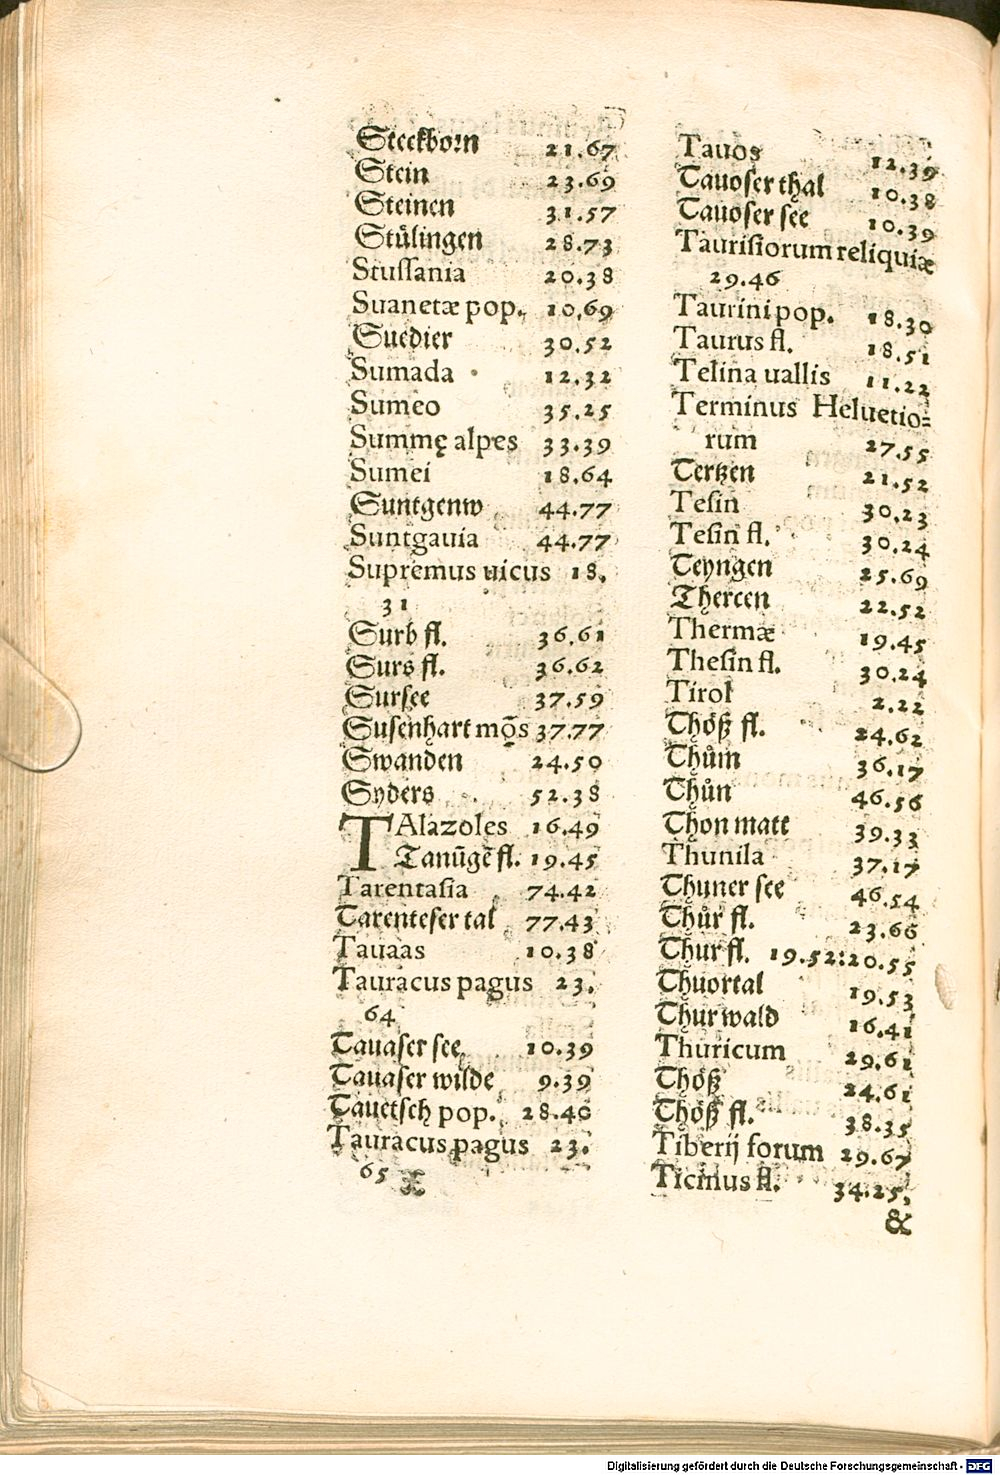 Steckborn 21.67
Stein 23.69
Steinen 31.57
Stůlingen 28.73
Stussania 20.38
Suanetæ pop. 10.69
Suedier 30.52
Sumada 12.32
Sumeo 35.25
Summę alpes 33.39
Sumei 18.64
Suntgenw 44.77
Suntgauia 44.77
Supremus uicus 18.
31
Surb fl. 36.61
Surs fl. 36.62
Sursee 37.59
Susenhart mōs 37.77
Swanden 24.50
Syders 52.38
TAlazoles 16.49
Tanūgē fl. 19.45
Tarentasia 74.42
Tarenteser tal 77.43
Tauaas 10.38
Tauracus pagus 23.
64
Tauaser see 10.39
Tauaser wilde 9.39
Tauetsch pop. 28.40
Tauracus pagus 23.
65
Tauos 12.39
Tauoser thal 10.38
Tauoser see 10.39
Taurisiorum reliquiæ
29.46
Taurini pop. 18.30
Taurus fl. 18.51
Telina uallis 11.22
Terminus Heluetio-
rum 27.55
Tertzen 21.52
Tesin 30.23
Tesin fl. 30.24
Teyngen 25.69
Thercen 22.52
Thermæ 19.45
Thesin fl. 30.24
Tirol 2.22
Thöß fl. 24.62
Thům 36.17
Thůn 46.56
Thon matt 39.33
Thunila 37.17
Thuner see 46.54
Thůr fl. 23.66
Thur fl. 19.52:20.55
Thuortal 19.53
Thur wald 16.41
Thuricum 29.61
Thöß 24.61
Thöß fl. 38.35
Tiberij forum 29.67
Ticinus fl. 34.25,
&
Digitalisierung gefördert durch die Deutsche Forschungsgemeinschaft - DFG